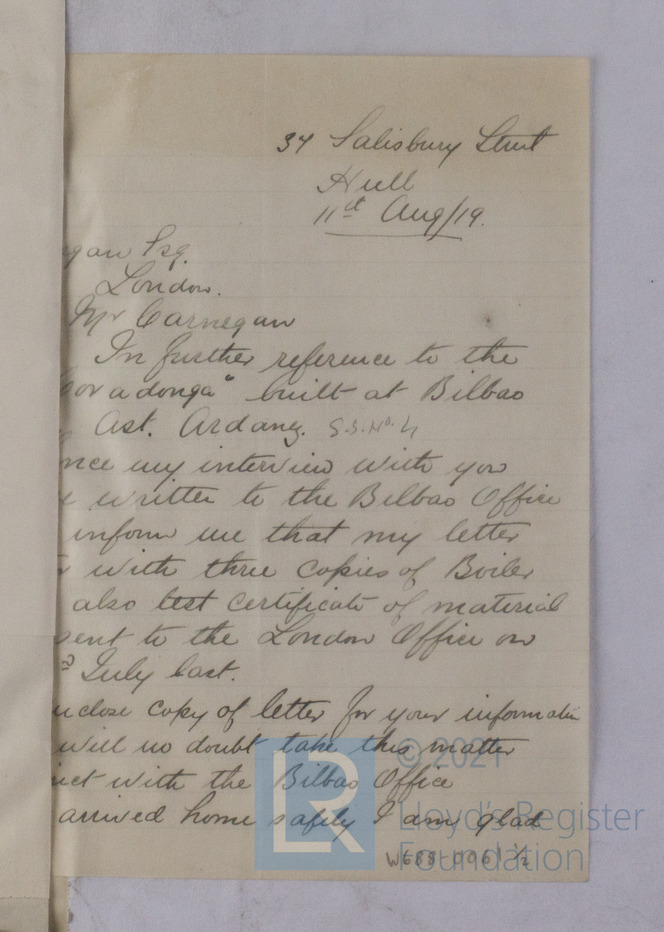 34 Salisbury Street
Hull
11th Aug/19.
gan Esq.
London.
Mr Carnegan
In further reference to the
ovadonga" built at Bilbao
Ast. Ardanz. S.S. No. 4
nce my interview with you
written to the Bilbao Office
inform me that my letter
with three copies of Boiler
also test certificate of material
sent to the London Office on
July last.
nclose copy of letter for your information
will no doubt take this matter
with the Bilbao Office
arrived home safely I am glad
© 2021
LR
Lloyd's Register
Foundation
W688-0061 1/2